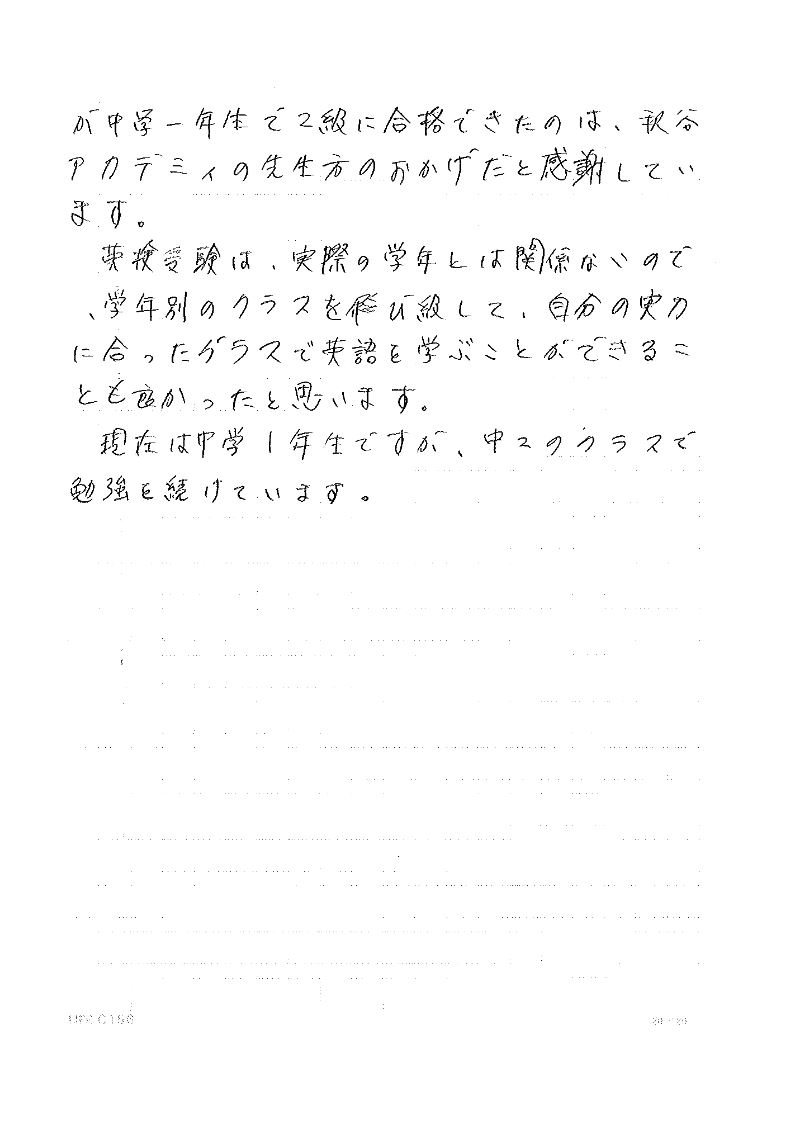 が中学一年生で2級に合格できたのは、秋谷
アカデミィの先生方のおかげだと感謝してい
ます。
英検受験は、実際の学年とは関係ないので
、学年別のクラスを飛び級して、自分の実力
に合ったクラスで英語を学ぶことができるこ
とも良かったと思います。
現在は中学1年生ですが、中2のクラスで
勉強を続けています。